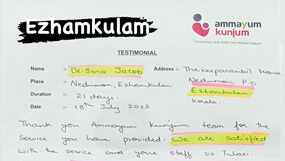 Ezhamkulam
ammayum
kunjum
TESTIMONIAL
Name :- Dr. Sona Jacob Address :- Thekkeparambil House
Place :- Nedumon, Ezhamkulam Nedumon P.O
Duration :- 21 days Ezhamkulam
Date :- 18th July 2023 Kerala.
Thank you Ammayum Kunjum team for the
Service you have provided. We are satisfied
with the service and your staff is Tulasi